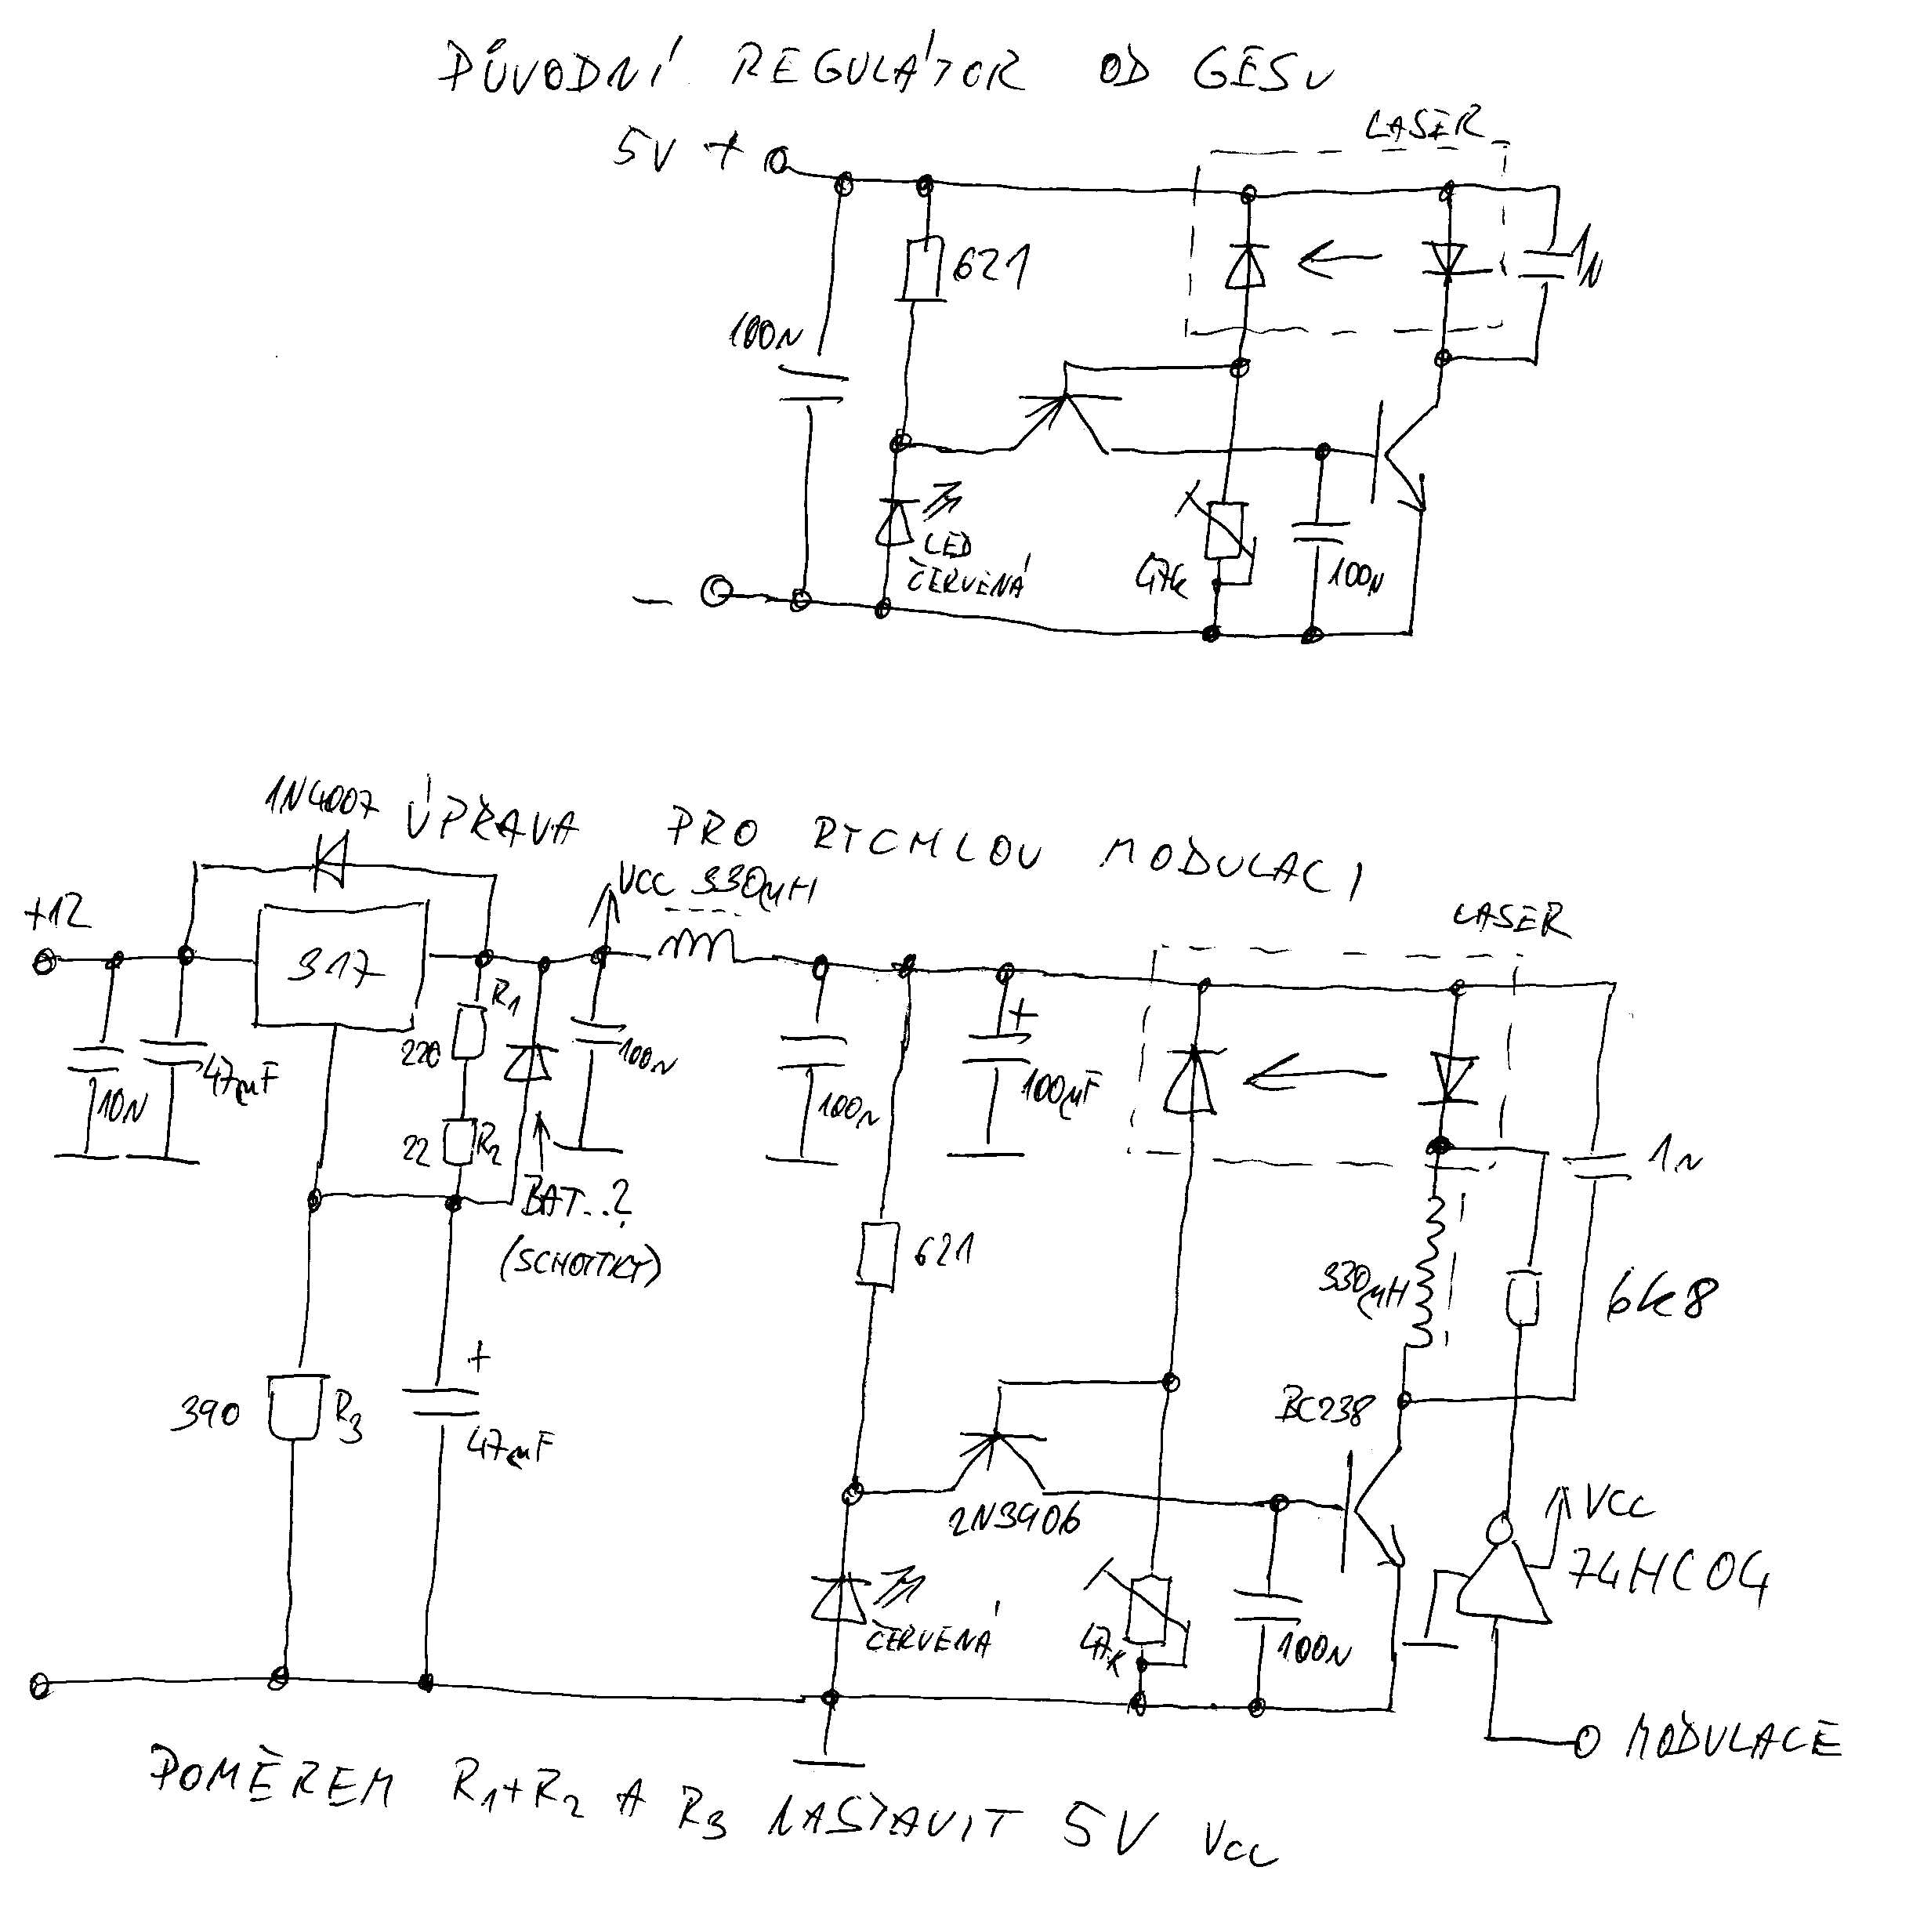 PŮVODNÍ REGULÁTOR OD GESU
LASER
5V +
621
1N
100N
LED
ČERVENÁ
47k
100N
-
1N4007
ÚPRAVA PRO RYCHLOU MODULACI
VCC 330µH
+12
LASER
317
R1
220
47µF
10N
100N
100N
100µF
22 R2
1N
BAT..?
(SCHOTTKY)
621
330µH
6k8
+
390 R3
47µF
BC238
2N3906
VCC
74HC04
ČERVENÁ
47k
100N
MODULACE
POMĚREM R1+R2 A R3 NASTAVIT 5V VCC